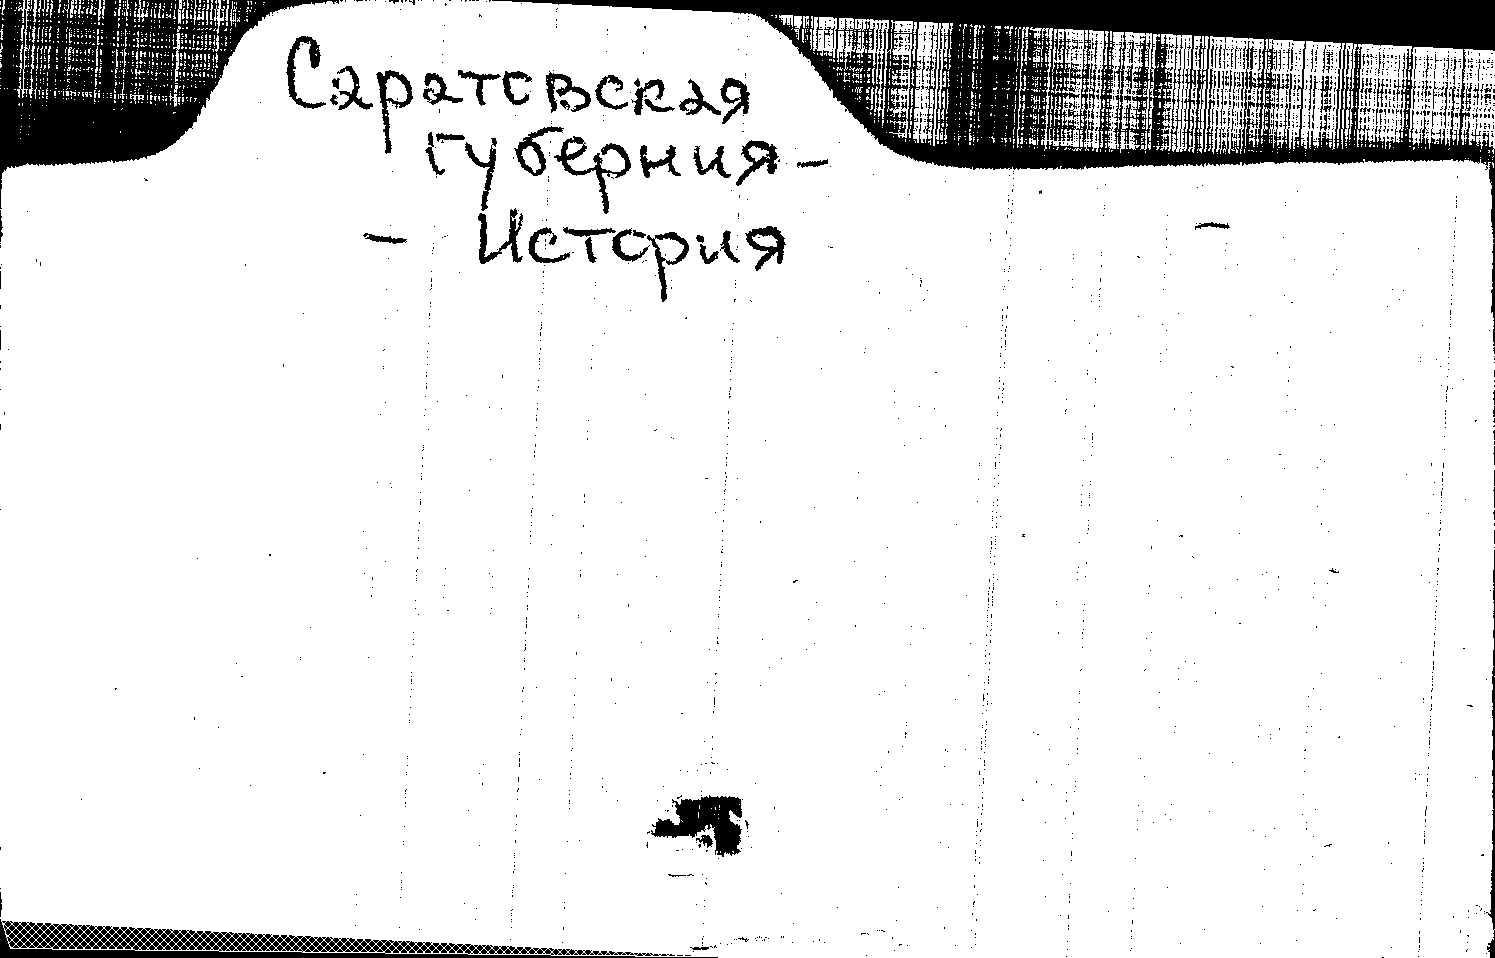 Саратовская
губерния -
- История